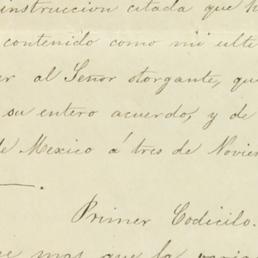 instruccion citada que h
contenido como mi ulte
er al Señor otorgante, que
su entero acuerdo, y de
de Mexico á tres de Novien
Primer Codicilo.
e mas que la